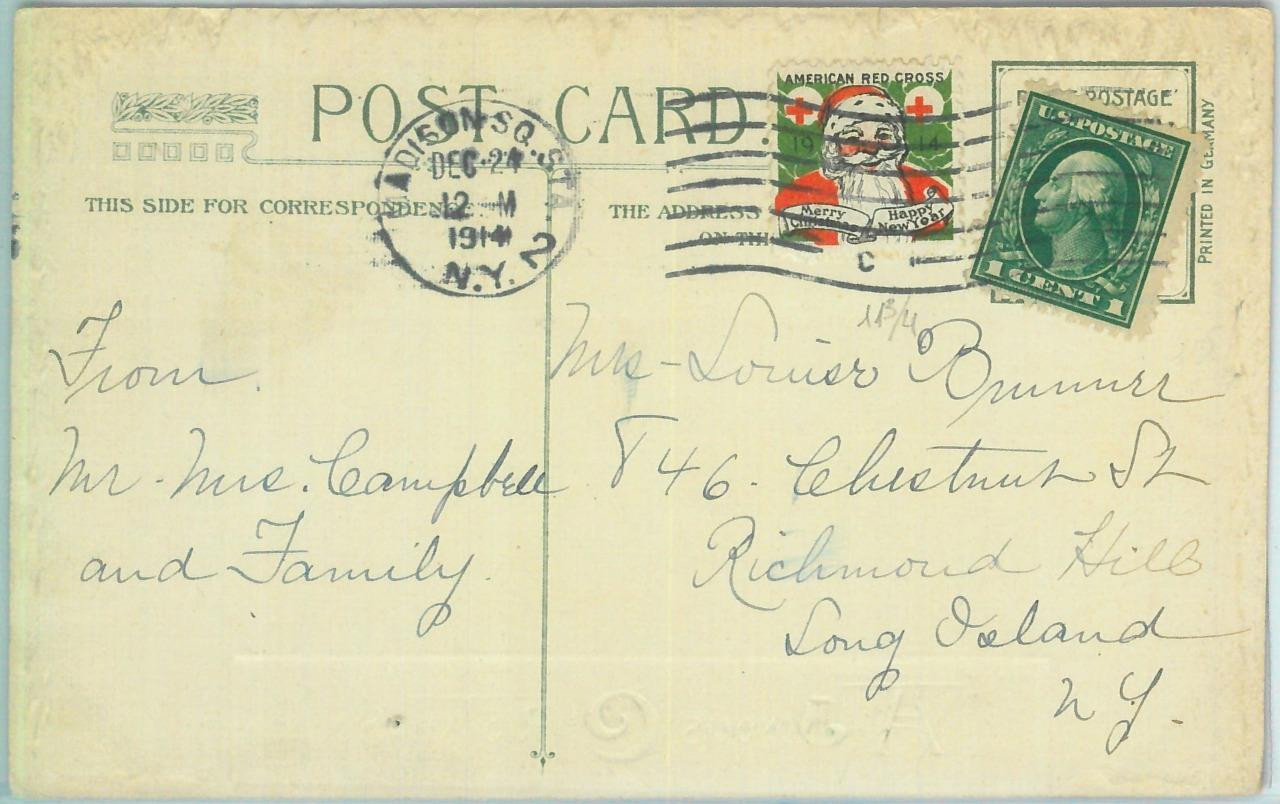 POST CARD.
MADISON SQ. STA
DEC 24
12 M
1914
N.Y. 2
AMERICAN RED CROSS
19 14
Merry Christmas
Happy New Year
POSTAGE
U.S. POSTAGE
1 CENT 1
PRINTED IN GERMANY
THIS SIDE FOR CORRESPONDEN
THE ADDRESS
ON THI
C
11 3/4
From.
Mr. Mrs. Campbell
and Family.
Mrs - Louise Brunner
846. Chestnut St
Richmond Hill
Long Island
N Y.